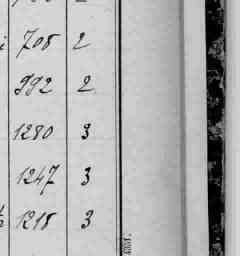 708 2
992 2
1280 3
1247 3
1218 3